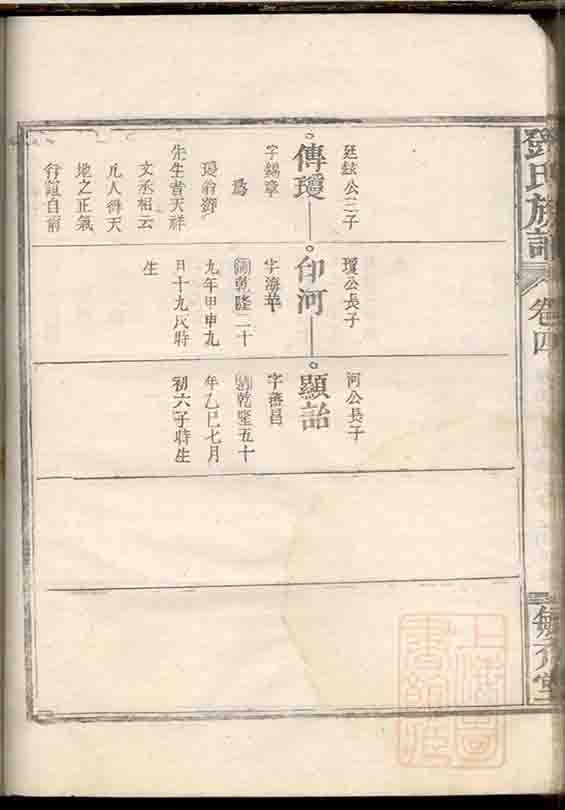 鄧氏族譜
卷四
廷鉉公三子
傳瓊
字錫章
爲
瓊翁鄧
先生者天祥
文丞相云
凡人得天
地之正氣
行誼自爾
瓊公長子
印河
字海華
清乾隆二十
九年甲申九
月十九辰時
生
河公長子
顯詒
字蕃昌
清乾隆五十
年乙巳七月
初六子時生
上海圖
書館藏